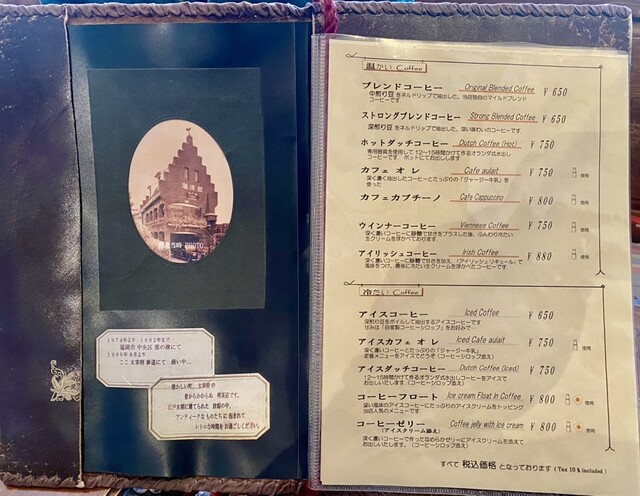 珈琲館
創業当時 PHOTO
1974年より 1982年まで
福岡市 中央区 那の津にて
1980年8月より
ここ 太宰府 参道にて 商い中...
懐かしい町...太宰府の
昔からかわらぬ 喫茶店です。
江戸末期に建てられた 旅館の中、
アンティークなものたちに 包まれて
レトロな時間を お過ごしください。
温かい Coffee
ブレンドコーヒー Original Blended Coffee ¥ 650
中煎り豆 をネルドリップで抽出した、当店独自のマイルドブレンド
コーヒーです
ストロングブレンドコーヒー Strong Blended Coffee ¥ 650
深煎り豆 をネルドリップで抽出した、深い味わいのコーヒーです
ホットダッチコーヒー Dutch Coffee (Hot) ¥ 750
専用器具を使用して 12〜15時間かけて作るオランダ式水出し
コーヒーです ホットにてお出しします
カフェ オ レ Cafe aulait ¥ 750 使用
深く濃く抽出したコーヒーとたっぷりの「ジャージー牛乳」を
使った
カフェカプチーノ Cafe Cappuccino ¥ 800 使用
ウインナーコーヒー Viennese Coffee ¥ 750 使用
深く濃いコーヒーに砂糖で甘さをプラスした後、ふんわり冷たい
生クリームを浮かべております
アイリッシュコーヒー Irish Coffee ¥ 880 使用
深く濃いコーヒーに砂糖で甘さを加え、「アイリッシュリキュール」で
風味をつけ、最後に冷たい生クリームを浮かべたコーヒーです
冷たい Coffee
アイスコーヒー Iced Coffee ¥ 650
深煎り豆をボイルして抽出するアイスコーヒーです
甘みは「自家製コーヒーシロップ」をお好みで…
アイスカフェ オ レ Iced Cafe aulait ¥ 750 使用
深く濃いコーヒーとたっぷりの「ジャージー牛乳」
定番メニューをアイスでどうぞ (コーヒーシロップ添え)
アイスダッチコーヒー Dutch Coffee (Iced) ¥ 750
12〜15時間かけて作るオランダ式水出しコーヒーをアイスで
お出しいたします (コーヒーシロップ添え)
コーヒーフロート Ice cream Float In Coffee ¥ 800 使用
深い風味のアイスコーヒーにたっぷりのアイスクリームをトッピング
当店人気のメニューです
コーヒーゼリー Coffee jelly with Ice cream ¥ 800 使用
(アイスクリーム添え)
深く濃いコーヒーで作ったなめらかゼリーにアイスクリームを添えて
お出しいたします。(コーヒーシロップ添え)
すべて 税込価格 となっております (Tax 10% included)